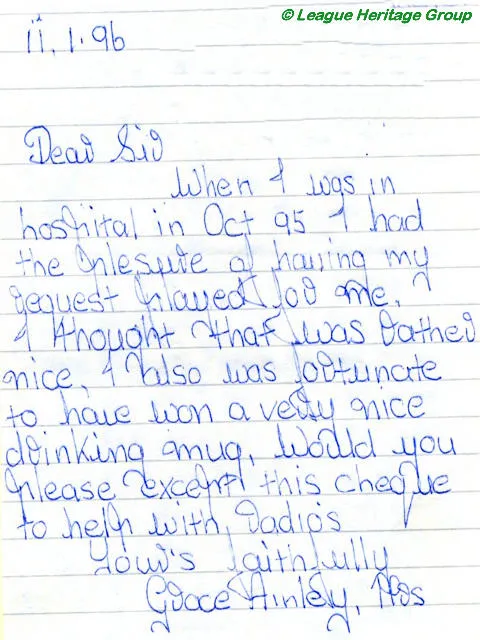 © League Heritage Group
11.1.96
Dear Sir
When I was in
hospital in Oct 95 I had
the plesure of having my
request played for me,
I thought that was rather
nice, I also was fortunate
to have won a very nice
drinking mug, Would you
please except this cheque
to help with, radio's
Your's faithfully
Grace Ainley, Mrs